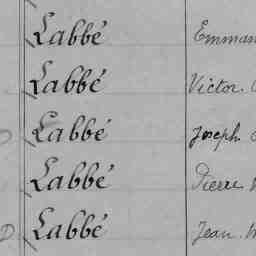 Labbé Emman
Labbé Victor.
Labbé Joseph
Labbé Pierre
Labbé Jean.